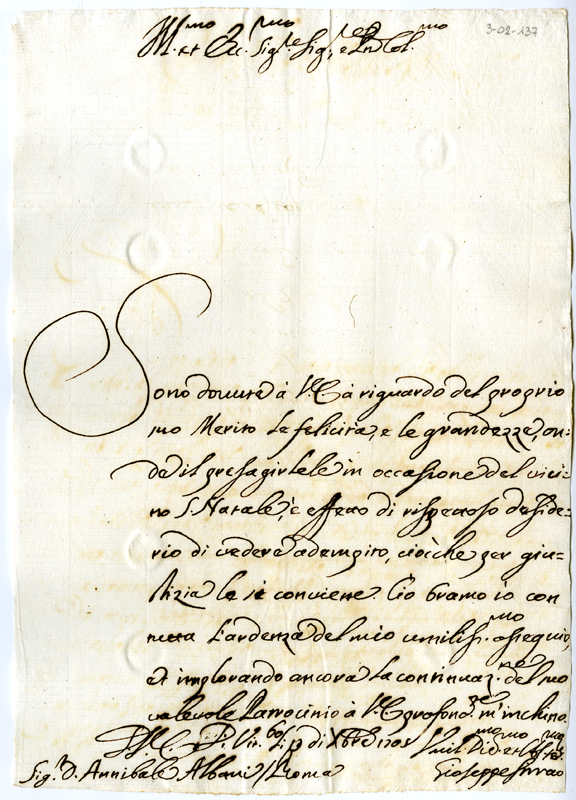 3-02-137
Ill.mo et Ecc.mo Sig.re Sig.r e P.ron Col.mo
Sono dovute à V.E. à riguardo del proprio
suo Merito le felicità, e le grandezze, on-
de il presagirLele in occassione del vici-
no S. Natale, è effetto di rispettoso deside-
rio di vedere adempito, ciòche per giu-
stizia le si conviene. Ciò bramo io con
tutta L'ardenza del mio umiliss.mo ossequio,
et implorando ancora La continuaz.ne del suo
valevole Patrocinio à V.E. profond.te m'inchino.
D. V.E. di Xbre 1705
Sig.r D. Annibale Albani / Roma
Gioseppe